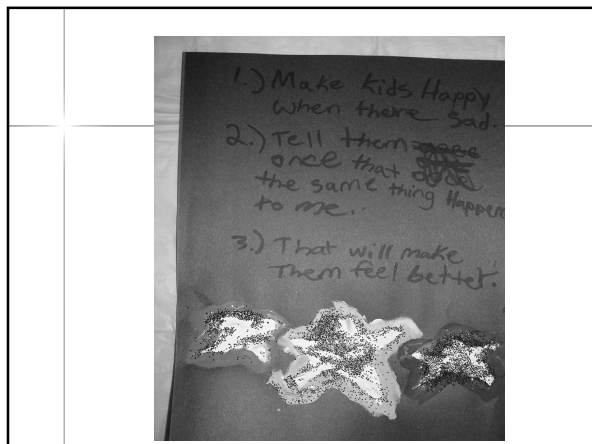 1.) Make kids Happy
when there sad.
2.) Tell them
once that
the same thing Happen
to me..
3.) That will make
Them feel better.